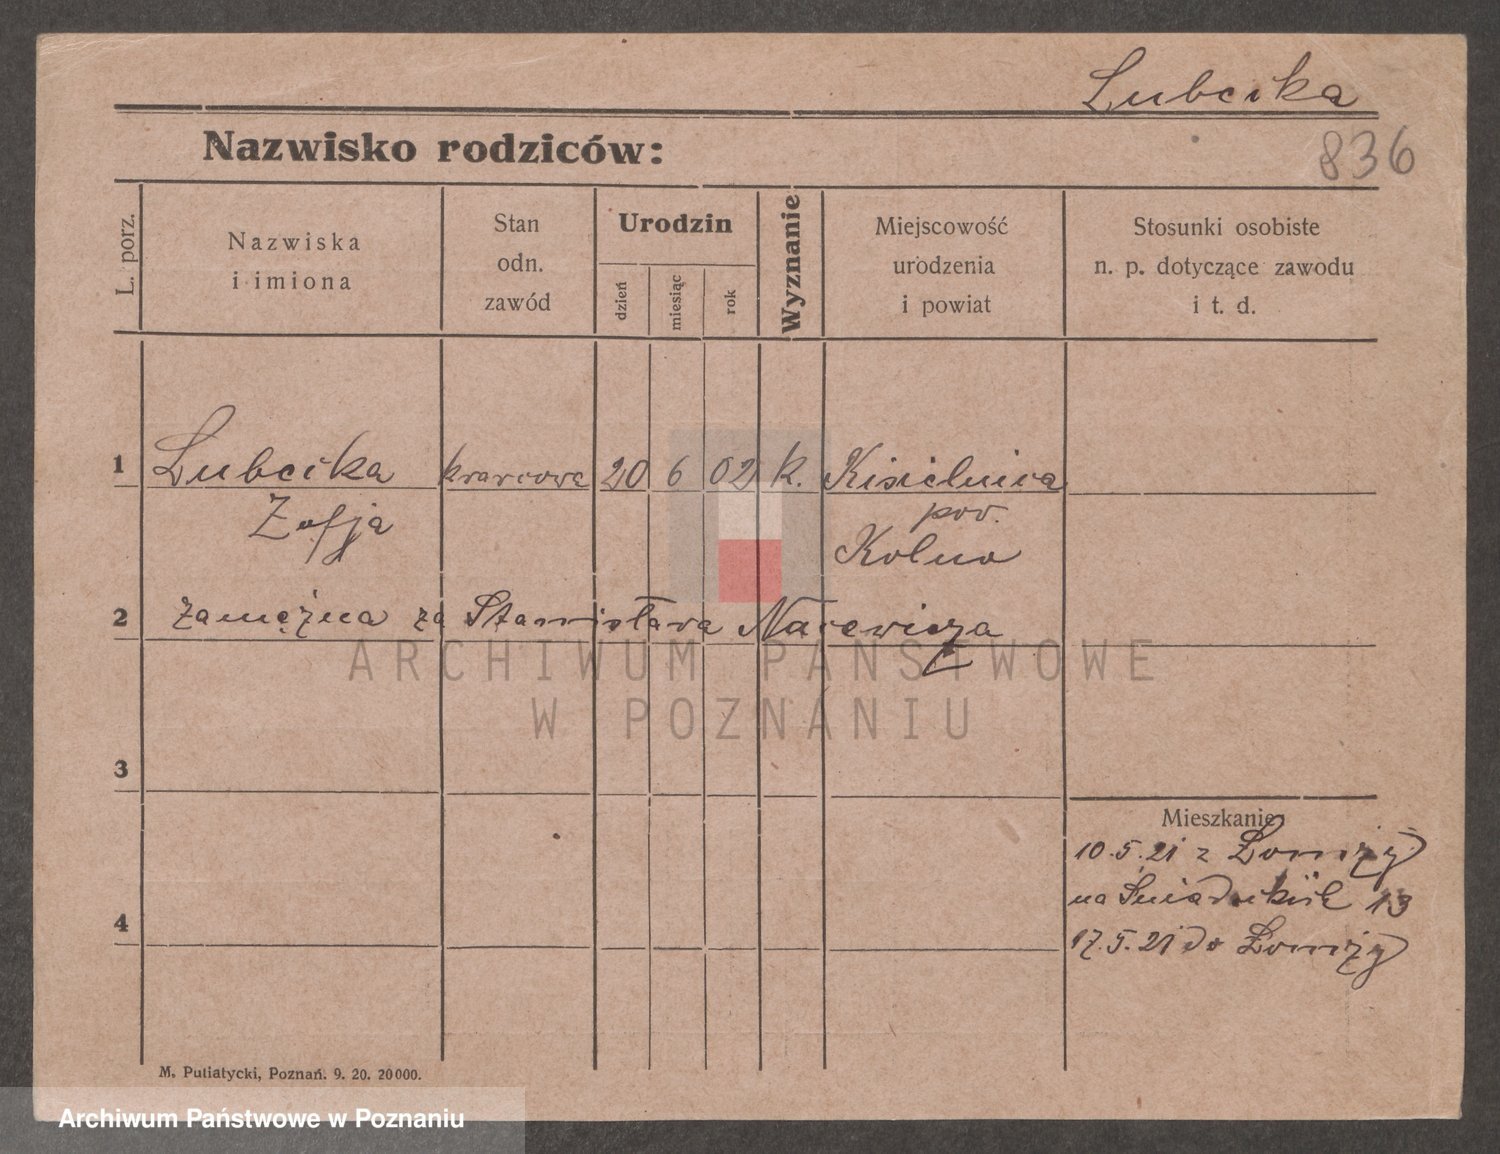 Lubcika
Nazwisko rodziców:
836
L. porz.
Nazwiska
i imiona
Stan
odn.
zawód
Urodzin
dzień
miesiąc
rok
Wyznanie
Miejscowość
urodzenia
i powiat
Stosunki osobiste
n. p. dotyczące zawodu
i t. d.
1 Lubcika krawcowa 20 6 02 k. Kisielnica
Zofja
pow.
Kolno
2 zamężna za Stanisława
3
Mieszkanie
10.5.21 z Łomży
na 13
4
17.5.21 do Łomży
M. Putiatycki, Poznań. 9. 20. 20000.
ARCHIWUM PAŃSTWOWE
W POZNANIU
Archiwum Państwowe w Poznaniu